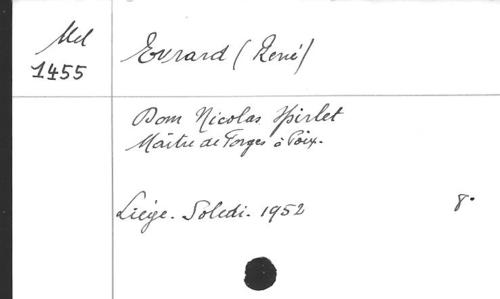 Mel
1455
Evrard (René)
Dom Nicolas Spirlet
Maître de Forges à Poix.
Liège. Soledi. 1952
8°